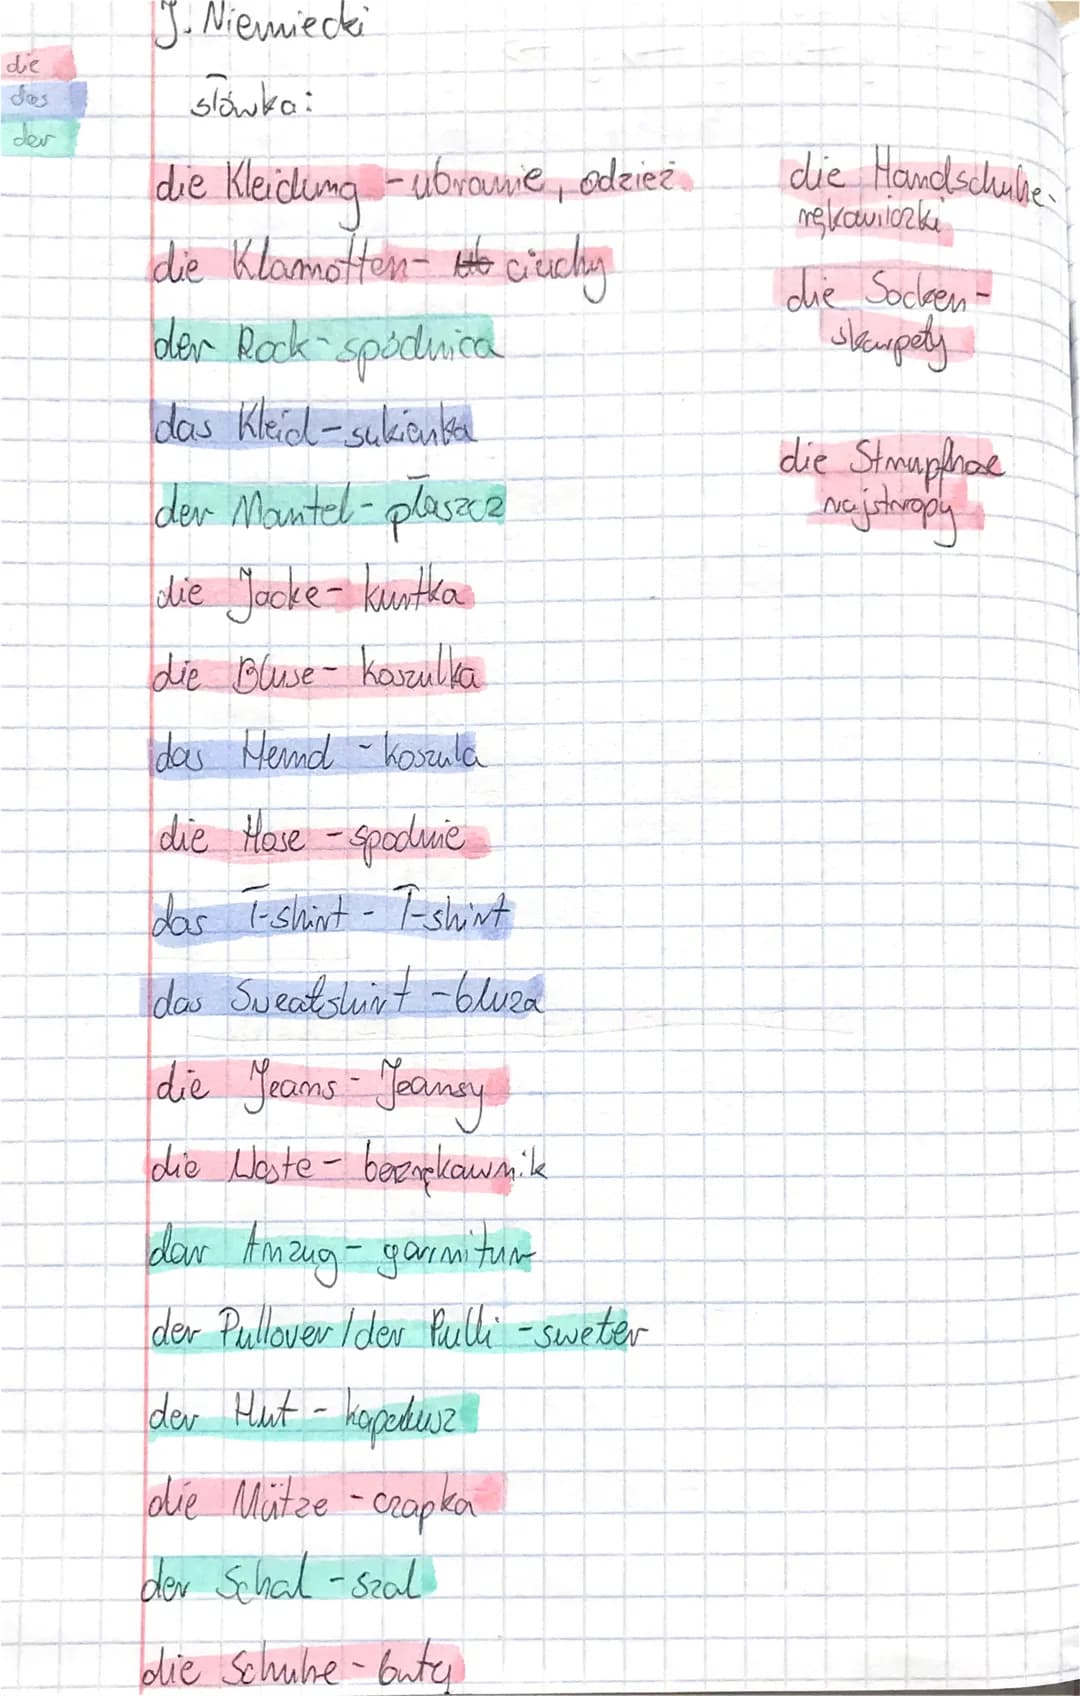 J. Niemiecki
die
das
der
słówka:
die Kleidung - ubranie, odzież
die Klamotten - ciuchy
der Rock - spódnica
das Kleid - sukienka
der Mantel - płaszcz
die Jacke - kurtka
die Bluse - koszulka
das Hemd - koszula
die Hose - spodnie
das T-shirt - T-shirt
das Sweatshirt - bluza
die Jeans - Jeansy
die Weste - bezrękawnik
der Anzug - garnitur
der Pullover / der Pulli - sweter
der Hut - kapelusz
die Mütze - czapka
der Schal - szal
die Schuhe - buty
die Handschuhe -
rękawiczki
die Socken -
skarpety
die Strupfhose
rajstropy